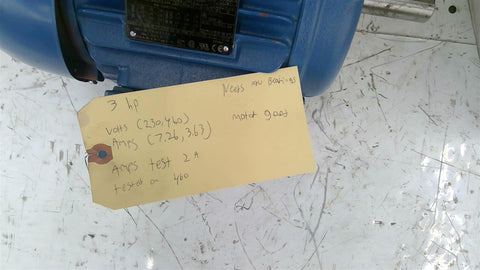 3 hp
Needs new Bearings
Volts (230,460)
Amps (7.26, 3.63)
motor good
Amps test 2 A
tested on 460